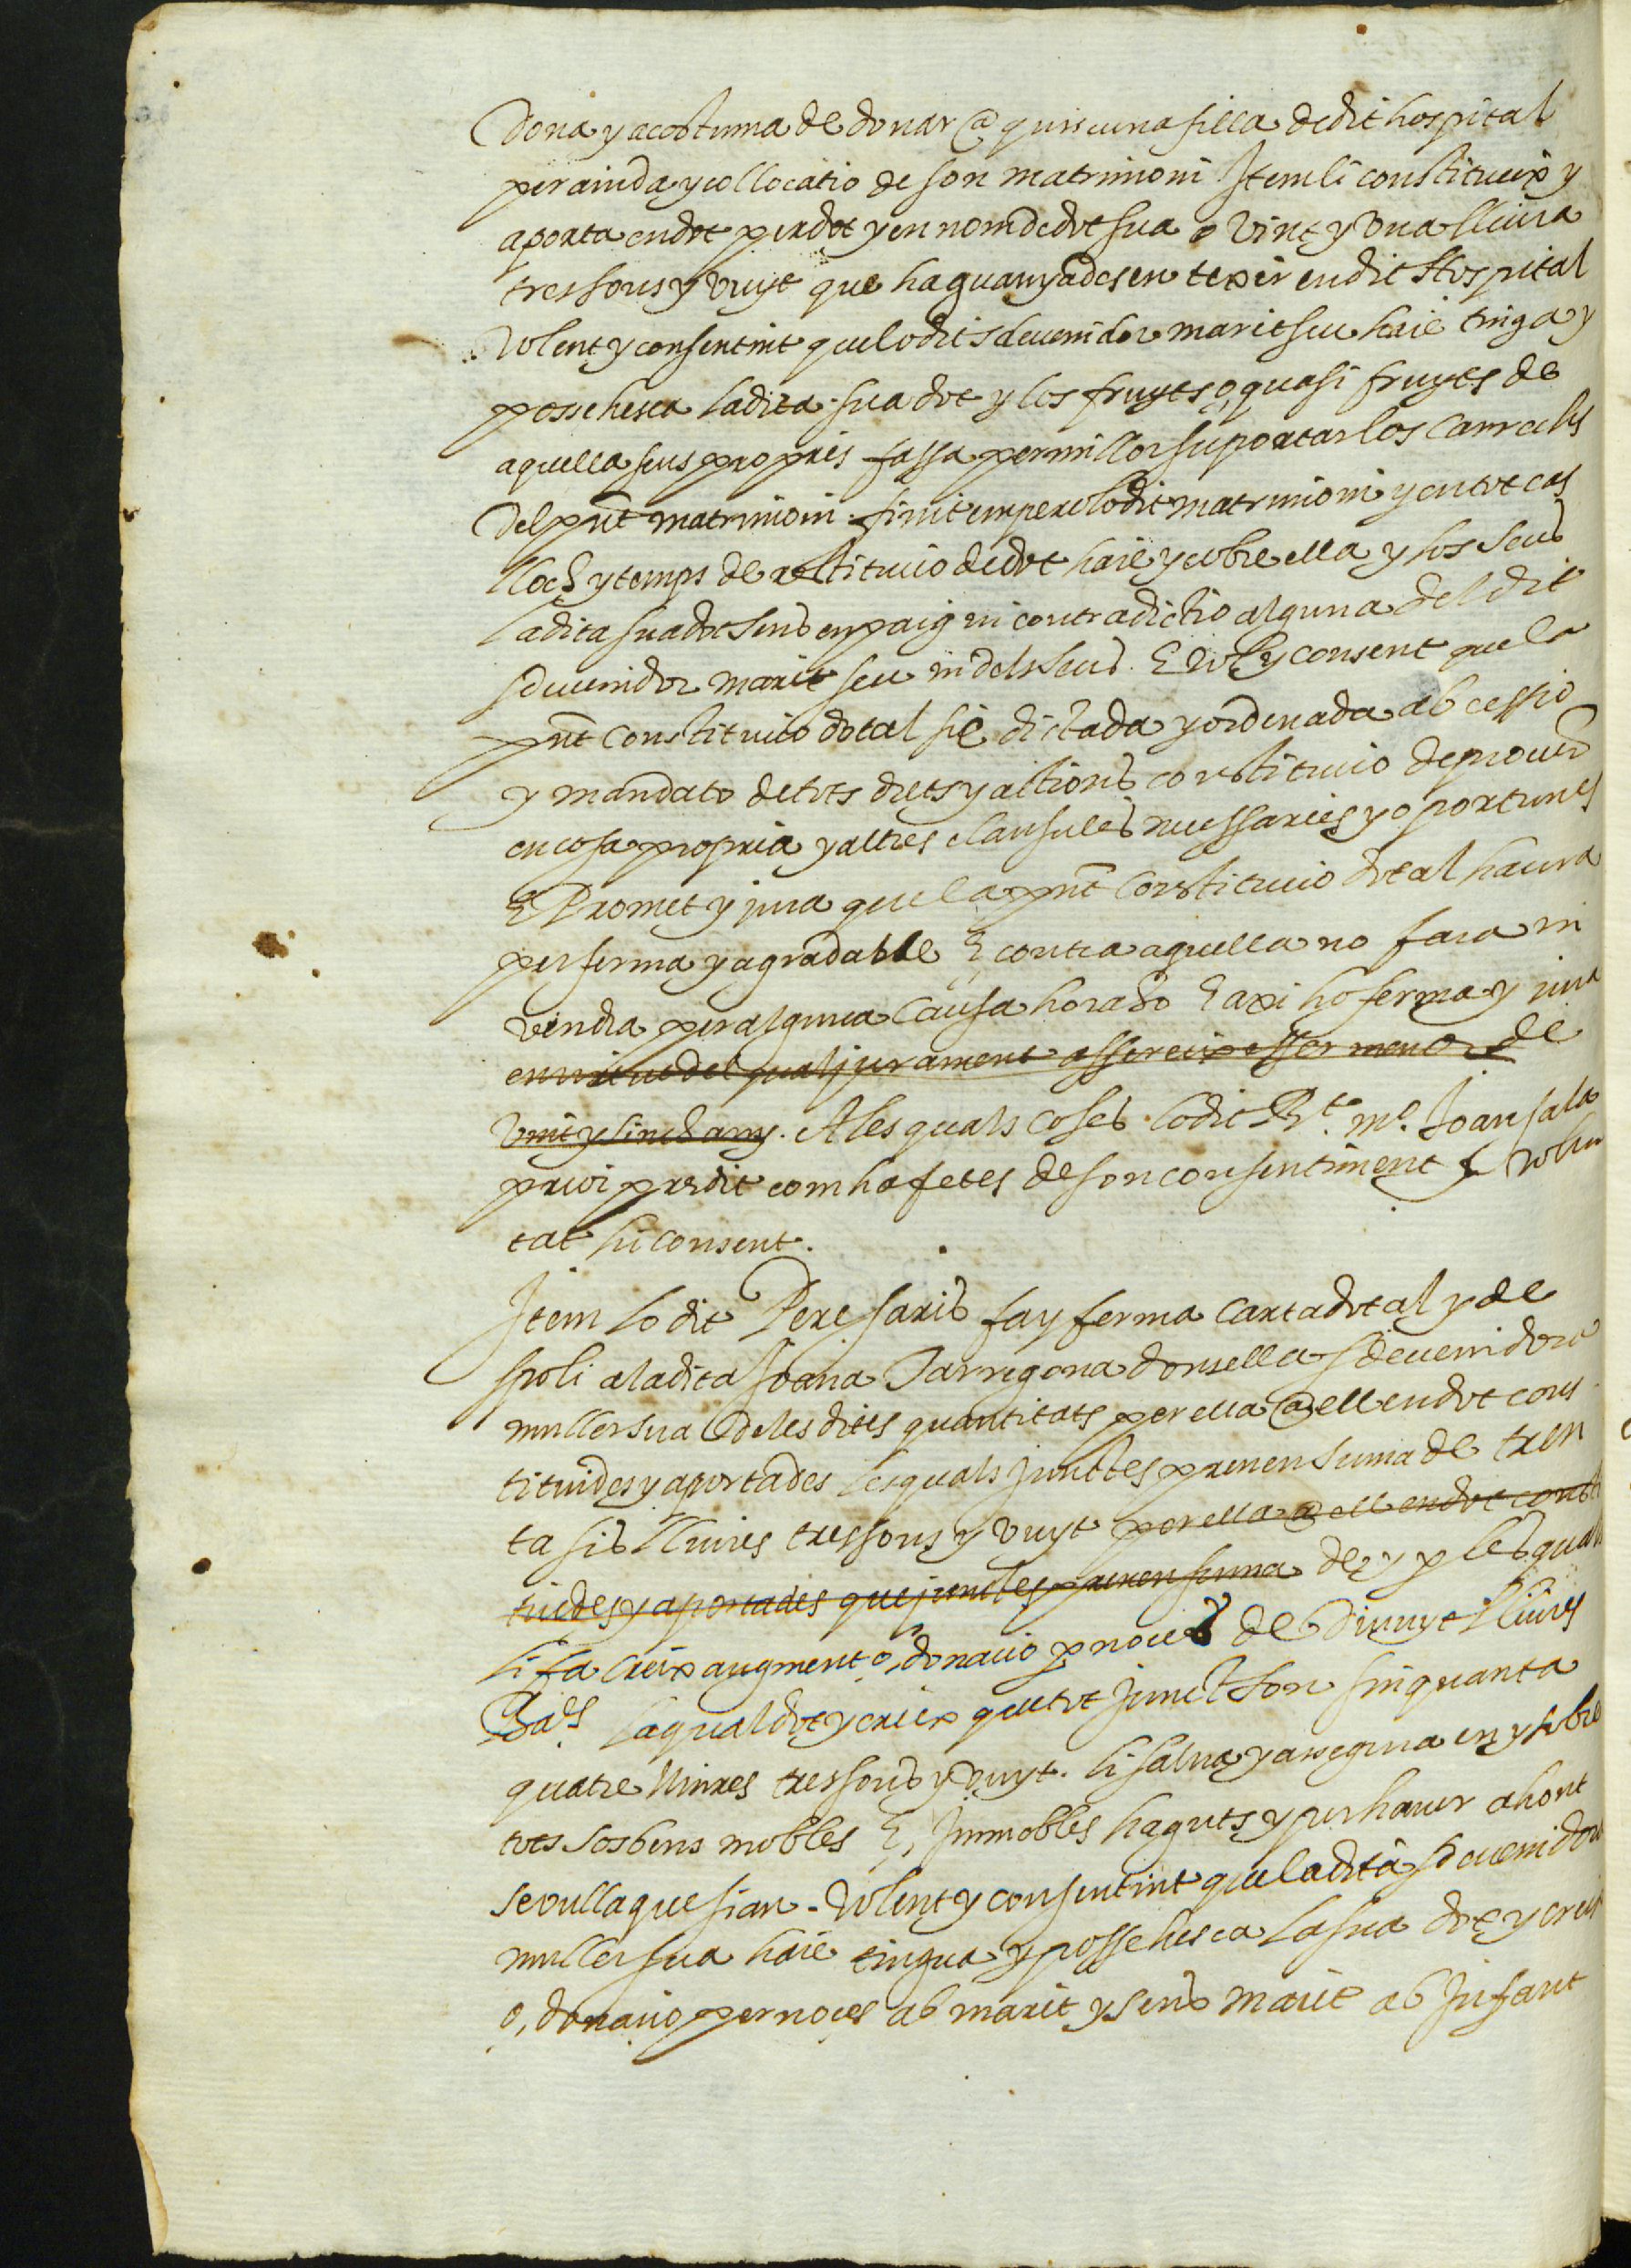 Dona y acostuma de donar @ quiscuna filla de dit hospital
per aiuda y collocatio de son matrimoni Item li constitueix y
aporta en dot per dot y en nom de dot sua vint y una lliura
tres sous y vuyt que ha guanyades en texir en dit Hospital
Volent y consentint que lo dit sdevenidor marit seu haie tinga y
possehesca la dita sua dot y los fruyts o, quasi fruyts de
aquella seus propris fassa per millor suportar los carrechs
del pnt matrimoni. finit empero lo dit matrimoni y en tot cas
lloch y temps de restitucio de dot haie y cobre ella y los seus
la dita sua dot sens enpaig ni contradictio alguna del dit
sdevenidor marit seu ni dels seus. E vol y consent que la
pnt constitucio dotal sie dictada y ordenada ab cessio
y mandato de tots drets y actions constitucio de procur
en cosa propria y altres clausules necessaries y oportunes
E Promet y jura que la pnt Constitucio dotal haura
per ferma y agradable E contra aquella no fara ni
vindra per alguna causa ho raho E axi ho ferma y jura
en virtut del qual jurament assereix esser menor de
vint y sinch anys. A les quals coses lo dit Rt. mo. Joan sala
prior predit com ha fetes de son consentiment y volun
tat hi consent.
Item lo dit Pere saris fa y ferma carta dotal y de
spoli a la dita Joana Tarragona donsella sdevenidora
muller sua de les dites quantitats per ella @ ell en dot cons
tituides y aportades les quals juntes prenen suma de tren
ta sis lliures tres sous y vuyt per ella @ ell en dot consti
tuides y aportades que juntes prenen suma de y p les quals
li fa creix augment o, donacio p nocies de divuyt lliures
Bars. la qual dot y creix que tot junct son sinquanta
quatre lliures tres sous y vuyt. li salva y assegura en y sobre
tots sos bens mobles E, Immobles haguts y per haver ahont
se vulla que sian. Volent y consentint que la dita sdevenidora
muller sua haie tingua y possehesca la sua dot y creix
o, donacio per nocies ab marit y sens marit ab Infant